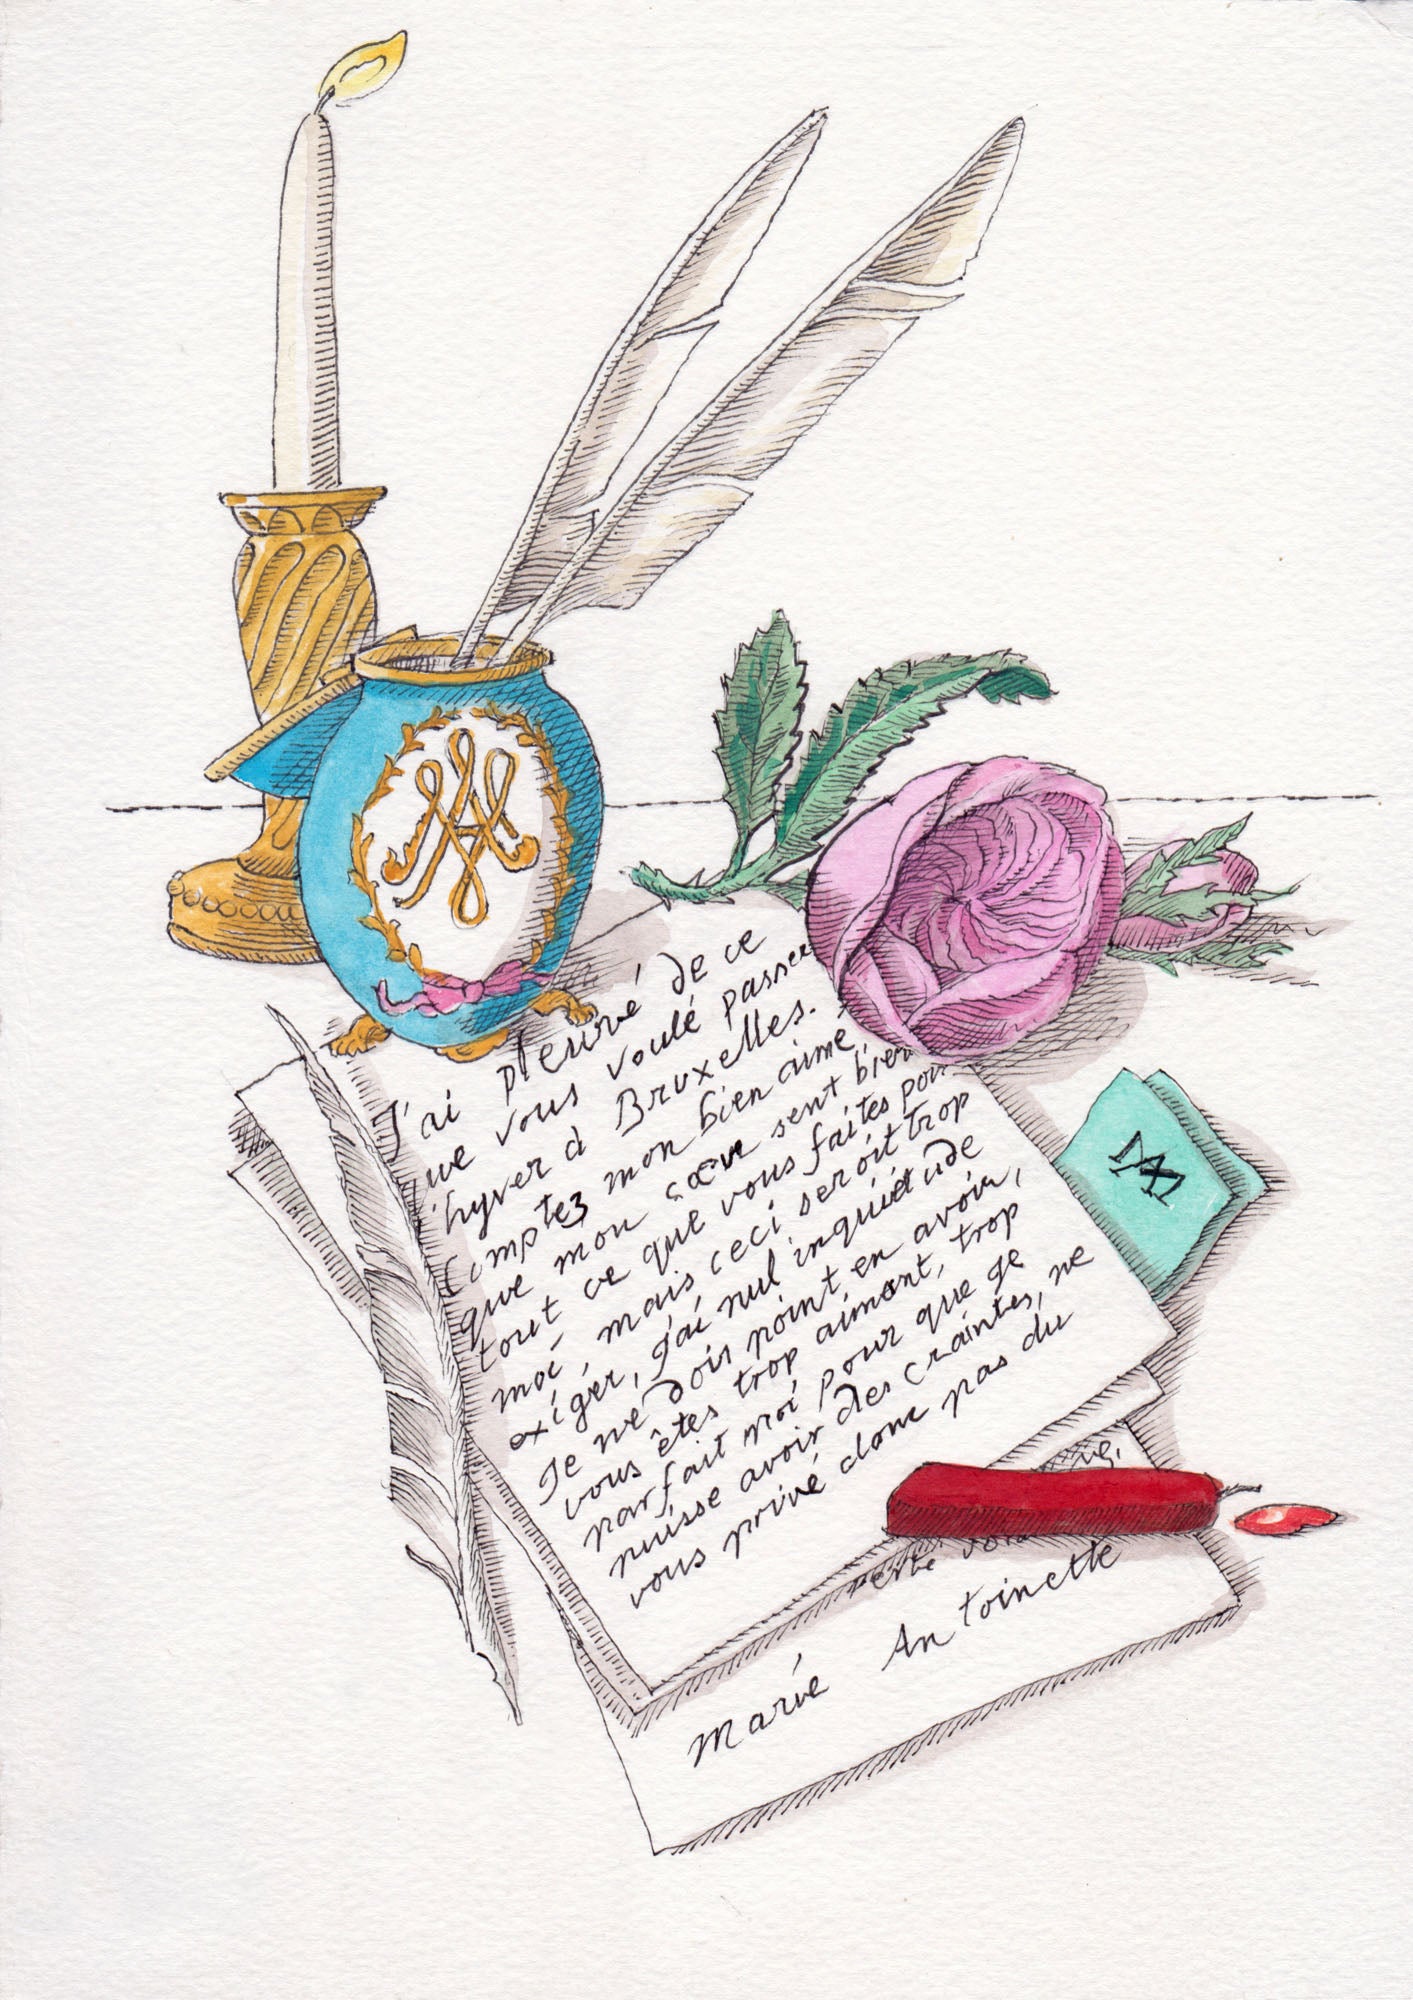 MA
J'ai pleuré de ce
que vous voulé passer
l'hyver à Bruxelles.
Comptez mon bien aimé
que mon cœur sent bien
tout ce que vous faites pour
moi, mais ceci seroit trop
exiger, j'ai nul inquiétude
Je ne dois point en avoir,
vous êtes trop aimant, trop
parfait moi pour que je
puisse avoir des craintes, ne
vous privé donc pas du
Marie Antoinette
MA